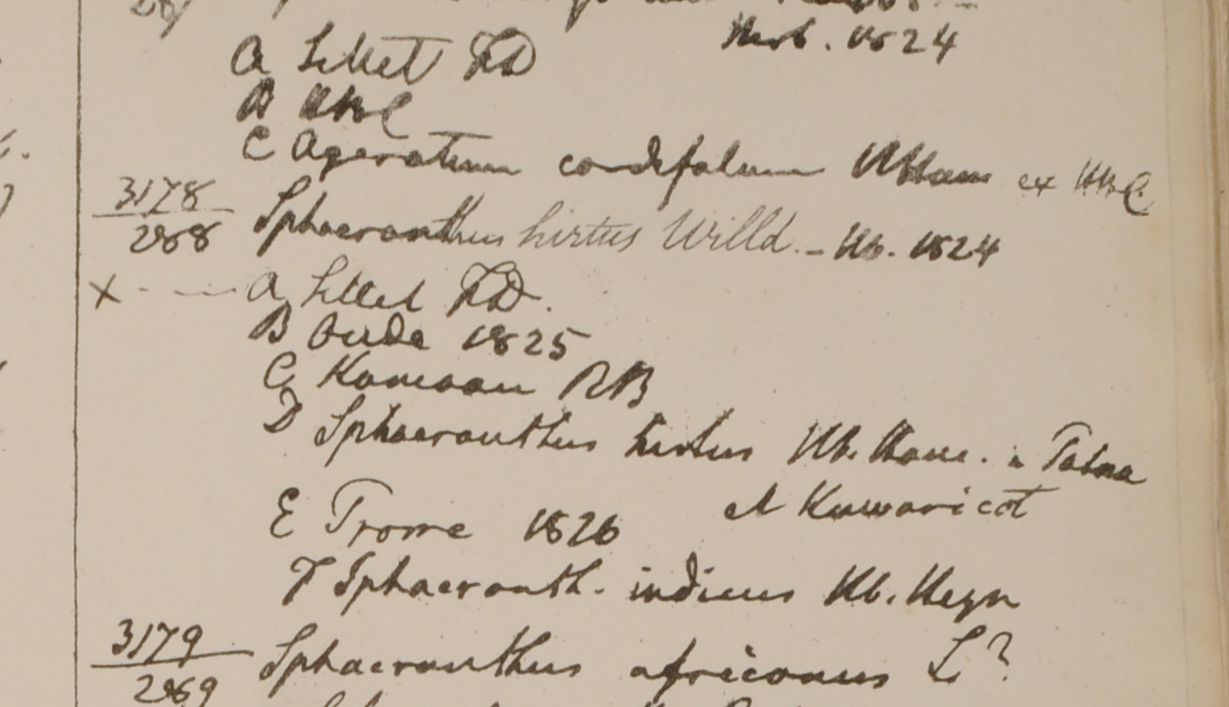 Herb. 1824
A Sillet FD
B HBC
C Ageratum cordifolium HHam ex HBC
3178
288 Sphaeranthus hirtus Willd. - Hb. 1824
x - - - A Sillet FD.
B Oude 1825
C Kamaon RB
D Sphaeranthus hirtus Hb. Ham. a Patna
et Kuwaricot
E Prome 1826
F Sphaeranth. indicus Hb. Heyn
3179
289 Sphaeranthus africanus L?